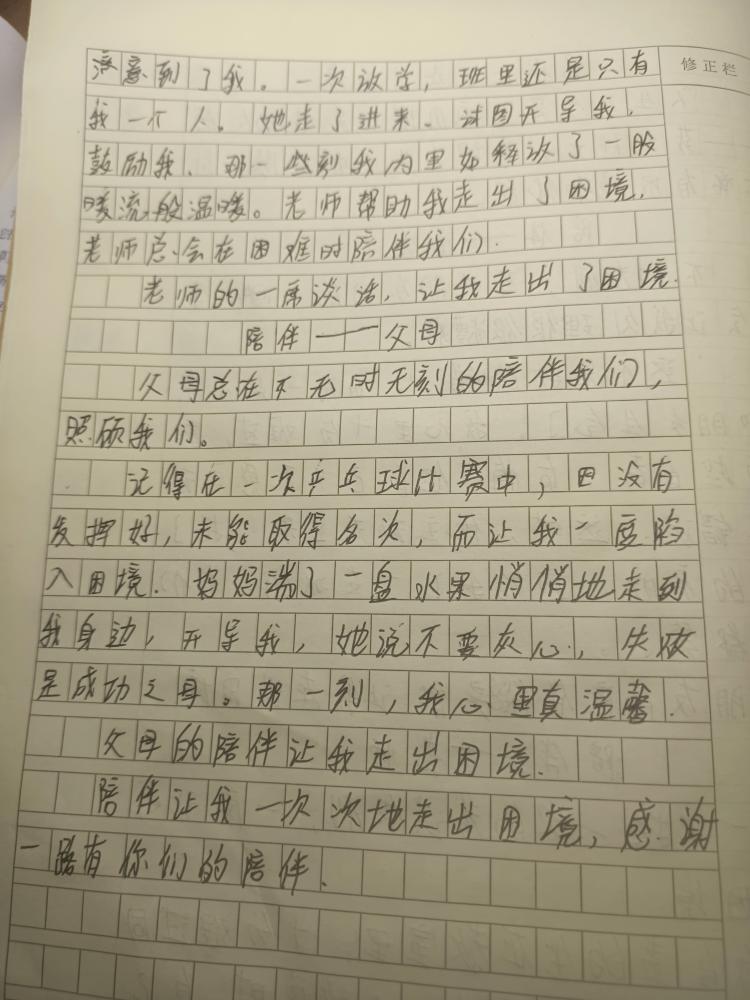 注意到了我。一次放学，班里还是只有
修正栏
我一个人。她走了进来、试图开导我，
鼓励我、那一些刻我内里如释放了一股
暖流般温暖。老师帮助我走出了困境，
老师总会在困难时陪伴我们.
老师的一席谈话，让我走出了困境.
陪伴——父母
父母总在不无时无刻的陪伴我们，
照顾我们。
记得在一次乒乓球比赛中，因没有
发挥好，未能取得名次，而让我一度陷
入困境.妈妈端了一盘水果悄悄地走到
我身边，开导我，她说不要灰心，失败
是成功之母。那一刻，我心里真温馨.
父母的陪伴让我走出困境.
陪伴让我一次次地走出困境，感谢
一路有你们的陪伴.